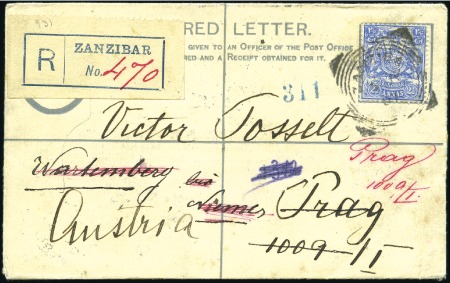 RED LETTER.
GIVEN TO AN OFFICER OF THE POST OFFICE
RED AND A RECEIPT OBTAINED FOR IT.
ZANZIBAR
R
No. 470
311
Victor Tosselt
Prag
1009/I.
Wartemberg bei
Niemes Prag
Austria
1009/I